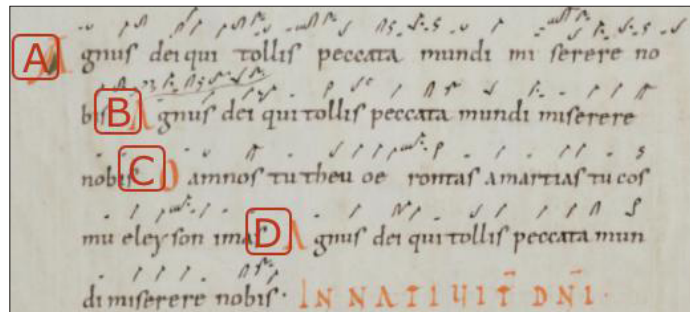 A Agnus dei qui tollis peccata mundi mi serere no
bis B Agnus dei qui tollis peccata mundi miserere
nobis C O amnos tu theu oe rontas amartias tu cos
mu eleyson imas D Agnus dei qui tollis peccata mun
di miserere nobis. IN NATIUIT DNI.